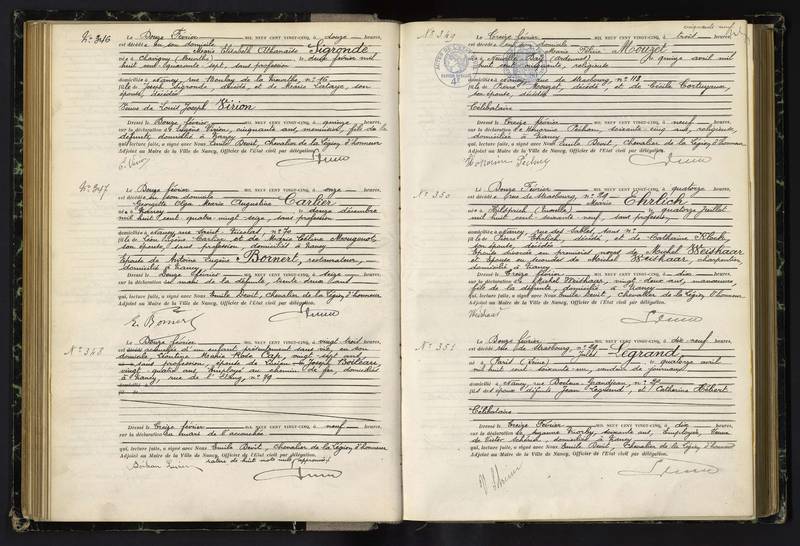 N° 346
Le Douze Février MIL NEUF CENT VINGT-CINQ, à douze heures,
est décédée en son domicile
Marie Elisabeth Athanaïse Sigronde
née à Chavigny (Meurthe) le dix février mil
huit cent quarante sept, sans profession
domiciliée à Nancy, rue
fille de Joseph Sigronde, décédé, et de Marie Lalaye, son
épouse, décédée
Veuve de Louis Joseph Virion
Dressé le Douze février MIL NEUF CENT VINGT-CINQ, à quinze heures,
sur la déclaration de Eugène Virion, cinquante ans, menuisier, fils de la
défunte, domicilié à Nancy
qui, lecture faite, a signé avec Nous Emile Devit, Chevalier de la Légion d'honneur
Adjoint au Maire de la Ville de Nancy, Officier de l'Etat civil par délégation.
N° 347
Le Douze février MIL NEUF CENT VINGT-CINQ, à onze heures,
est décédée en son domicile
Georgette Olga Marie Augustine Carlier
née à Nancy le douze décembre
mil huit cent quatre-vingt seize, sans profession
domiciliée à Nancy, rue Saint Nicolas, n° 70
fille de Léon Eugène Carlier, et de Marie Céline Mougenot
son épouse, sans profession, domiciliés à Nancy
Epouse de Antoine Eugène Bornert,
domicilié à Nancy
Dressé le Douze Février MIL NEUF CENT VINGT-CINQ, à seize heures,
sur la déclaration du mari de la défunte, trente deux ans
qui, lecture faite, a signé avec Nous Emile Devit, Chevalier de la Légion d'honneur
Adjoint au Maire de la Ville de Nancy, Officier de l'Etat civil par délégation.
E. Bornert
N° 348
Le Douze février MIL NEUF CENT VINGT-CINQ, à vingt trois heures,
est accouchée d'un enfant présentement sans vie, en son
domicile, Léontine Marie Rose Cap, vingt-sept ans
sans profession, épouse de Lucien Joseph Boileau,
vingt-quatre ans, employé au chemin de fer, domiciliés
à Nancy, rue de l'Etang, n° 49
Dressé le Treize février MIL NEUF CENT VINGT-CINQ, à neuf heures,
sur la déclaration du mari de l'accouchée
qui, lecture faite, a signé avec Nous Emile Devit, Chevalier de la Légion d'honneur
Adjoint au Maire de la Ville de Nancy, Officier de l'Etat civil par délégation.
rature de huit mots nuls approuvée
Boileau Lucien
cinquante neuf
N° 349
Le Treize février MIL NEUF CENT VINGT-CINQ, à trois heures,
est décédée en son domicile
Marie Félicie Mouzet
née à (Ardennes) le quinze avril mil
huit cent cinquante, religieuse
domiciliée à Nancy, rue de Strasbourg, n° 118
fille de Pierre Mouzet, décédé, et de Cécile
son épouse, décédée
Célibataire
Dressé le Treize février MIL NEUF CENT VINGT-CINQ, à neuf heures,
sur la déclaration de Honorine Pechon, soixante cinq ans, religieuse,
domiciliée à Nancy
qui, lecture faite, a signé avec Nous Emile Devit, Chevalier de la Légion d'honneur
Adjoint au Maire de la Ville de Nancy, Officier de l'Etat civil par délégation.
N° 350
Le Douze Février MIL NEUF CENT VINGT-CINQ, à quatorze heures,
est décédée rue de Strasbourg, n° 29
Marie Ehrlich
née à (Moselle) le quatorze juillet
mil huit cent soixante-neuf, sans profession
domiciliée à Nancy, rue des Sables, sans n°
fille de Pierre Ehrlich, décédé, et de Catherine Klock,
son épouse, décédée
Epouse divorcée en premières noces de Michel Weishaar
et épouse en secondes de Michel Weishaar, charpentier
domicilié à Nancy
Dressé le Treize février MIL NEUF CENT VINGT-CINQ, à dix heures,
sur la déclaration de Michel Weishaar, vingt-deux ans, manœuvre,
fils de la défunte, domicilié à Nancy
qui, lecture faite, a signé avec Nous Emile Devit, Chevalier de la Légion d'honneur
Adjoint au Maire de la Ville de Nancy, Officier de l'Etat civil par délégation.
N° 351
Le Douze février MIL NEUF CENT VINGT-CINQ, à dix-neuf heures,
est décédé rue de Strasbourg, n° 29
Jules Legrand
né à Paris (Seine) le quatorze avril
mil huit cent soixante-un, vendeur de journaux
domicilié à Nancy, rue Grandjean, n° 20
fils des époux défunts Jean Legrand, et Catherine Hébert
Célibataire
Dressé le Treize Février MIL NEUF CENT VINGT-CINQ, à dix heures,
sur la déclaration de Suzanne soixante ans, employée, veuve
de Victor domiciliée à Nancy
qui, lecture faite, a signé avec Nous Emile Devit, Chevalier de la Légion d'honneur
Adjoint au Maire de la Ville de Nancy, Officier de l'Etat civil par délégation.